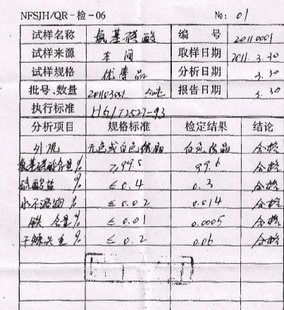 NFSJH/QR-检-06 No: 01
试样名称 氨基磺酸 编号 20110001
试样来源 车间 取样日期 2011.3.30
试样规格 优等品 分析日期 3.30
批号、数量 20110301 报告日期 3.30
执行标准 HG/T2527-93
分析项目 规格标准 检定结果 结论
外观 无色或白色结晶 白色结晶 合格
氨基磺酸含量% ≥99.5 99.6 合格
硫酸盐 % ≤0.4 0.3 合格
水不溶物 % ≤0.02 0.014 合格
铁含量% ≤0.01 0.0005 合格
干燥失重 % ≤0.2 0.06 合格